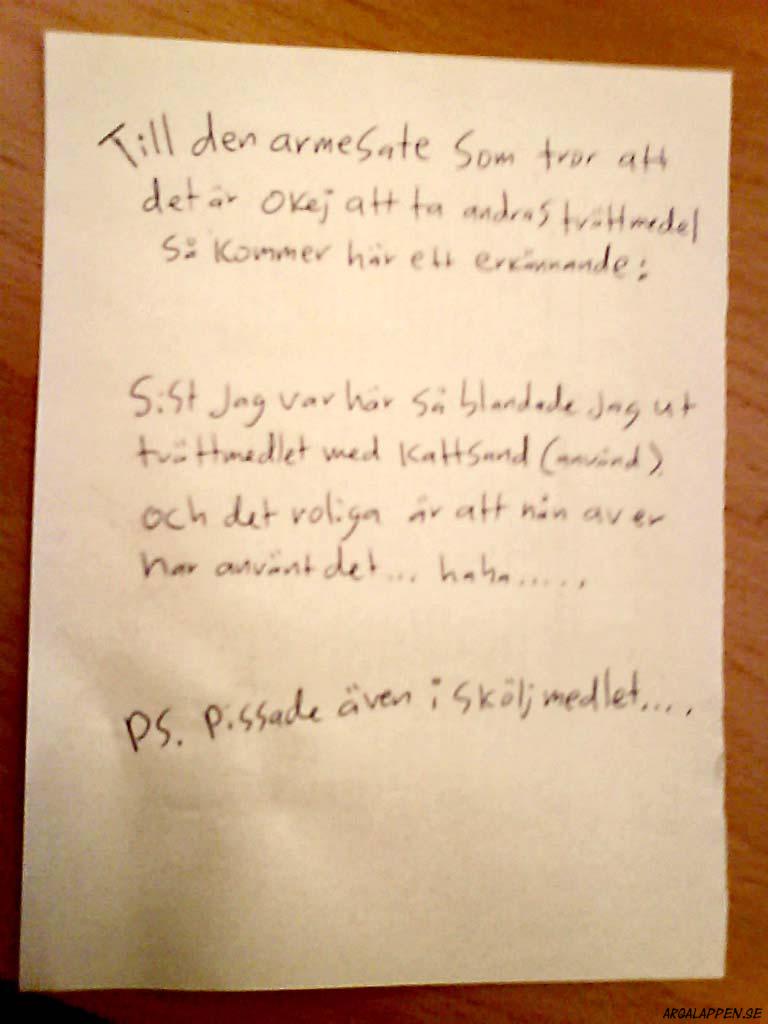 Till den armesate som tror att
det är okej att ta andras tvättmedel
så kommer här ett erkännande:
Sist jag var här så blandade jag ut
tvättmedlet med kattsand (använd)
och det roliga är att nån av er
har använt det... haha.....
PS. pissade även i sköljmedlet....
ARGALAPPEN.SE